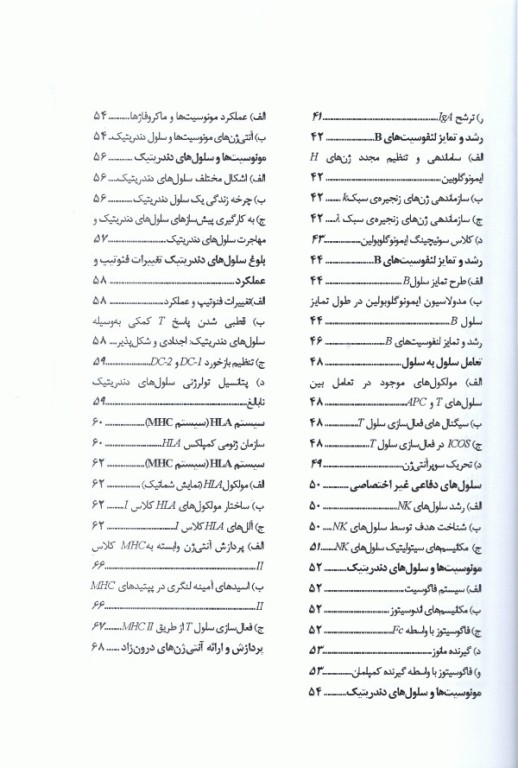 ر) ترشح IgA ........ ۴۱
رشد و تمایز لنفوسیت‌های B ........ ۴۲
الف) ساماندهی و تنظیم مجدد ژن‌های H
ایمونوگلوبین ........ ۴۲
ب) سازماندهی ژن‌های زنجیره‌ی سبک k ........ ۴۲
ج) سازماندهی ژن‌های زنجیره‌ی سبک λ ........ ۴۲
د) کلاس سوئیچینگ ایمونوگلوبولین ........ ۴۳
رشد و تمایز لنفوسیت‌های B ........ ۴۴
الف) طرح تمایز سلول B ........ ۴۴
ب) مدولاسیون ایمونوگلوبولین در طول تمایز
سلول B ........ ۴۴
رشد و تمایز لنفوسیت‌های B ........ ۴۶
تعامل سلول به سلول ........ ۴۸
الف) مولکول‌های موجود در تعامل بین
سلول‌های T و APC ........ ۴۸
ب) سیگنال های فعال‌سازی سلول T ........ ۴۸
ج) ICOS در فعال‌سازی سلول T ........ ۴۸
د) تحریک سوپرآنتی‌ژن ........ ۴۹
سلول‌های دفاعی غیر اختصاصی ........ ۵۰
الف) رشد سلول‌های NK ........ ۵۰
ب) شناخت هدف توسط سلول‌های NK ........ ۵۰
ج) مکانیسم‌های سیتولیتیک سلول‌های NK ........ ۵۱
مونوسیت‌ها و سلول‌های دندریتیک ........ ۵۲
الف) سیستم فاگوسیت ........ ۵۲
ب) مکانیسم‌های اندوسیتوز ........ ۵۲
ج) فاگوسیتوز با واسطه Fc ........ ۵۲
د) گیرنده مانوز ........ ۵۳
و) فاگوسیتوز با واسطه گیرنده کمپلمان ........ ۵۳
مونوسیت‌ها و سلول‌های دندریتیک ........ ۵۴
الف) عملکرد مونوسیت‌ها و ماکروفاژها ........ ۵۴
ب) آنتی‌ژن‌های مونوسیت‌ها و سلول دندریتیک ........ ۵۴
مونوسیت‌ها و سلول‌های دندریتیک ........ ۵۶
الف) اشکال مختلف سلول‌های دندریتیک ........ ۵۶
ب) چرخه زندگی یک سلول دندریتیک ........ ۵۶
ج) به کارگیری پیش‌سازهای سلول‌های دندریتیک و
مهاجرت سلول‌های دندریتیک ........ ۵۷
بلوغ سلول‌های دندریتیک تغییرات فنوتیپ و
عملکرد ........ ۵۸
الف) تغییرات فنوتیپ و عملکرد ........ ۵۸
ب) قطبی شدن پاسخ T کمکی به‌وسیله
سلول‌های دندریتیک: اجدادی و شکل‌پذیر ........ ۵۸
ج) تنظیم بازخورد DC-1 و DC-2 ........ ۵۹
د) پتانسیل تولرژنی سلول‌های دندریتیک
نابالغ ........ ۵۹
سیستم HLA (سیستم MHC) ........ ۶۰
سازمان ژنومی کمپلکس HLA ........ ۶۰
سیستم HLA (سیستم MHC) ........ ۶۲
الف) مولکول HLA (نمایش شماتیک) ........ ۶۲
ب) ساختار مولکول‌های HLA کلاس I ........ ۶۲
ج) آلل‌های HLA کلاس I ........ ۶۲
الف) پردازش آنتی‌ژن وابسته به MHC کلاس
II ........ ۶۶
ب) اسیدهای آمینه لنگری در پپتیدهای MHC
II ........ ۶۶
ج) فعال‌سازی سلول T از طریق MHC II ........ ۶۷
پردازش و ارائه آنتی‌ژن‌های درون‌زاد ........ ۶۸